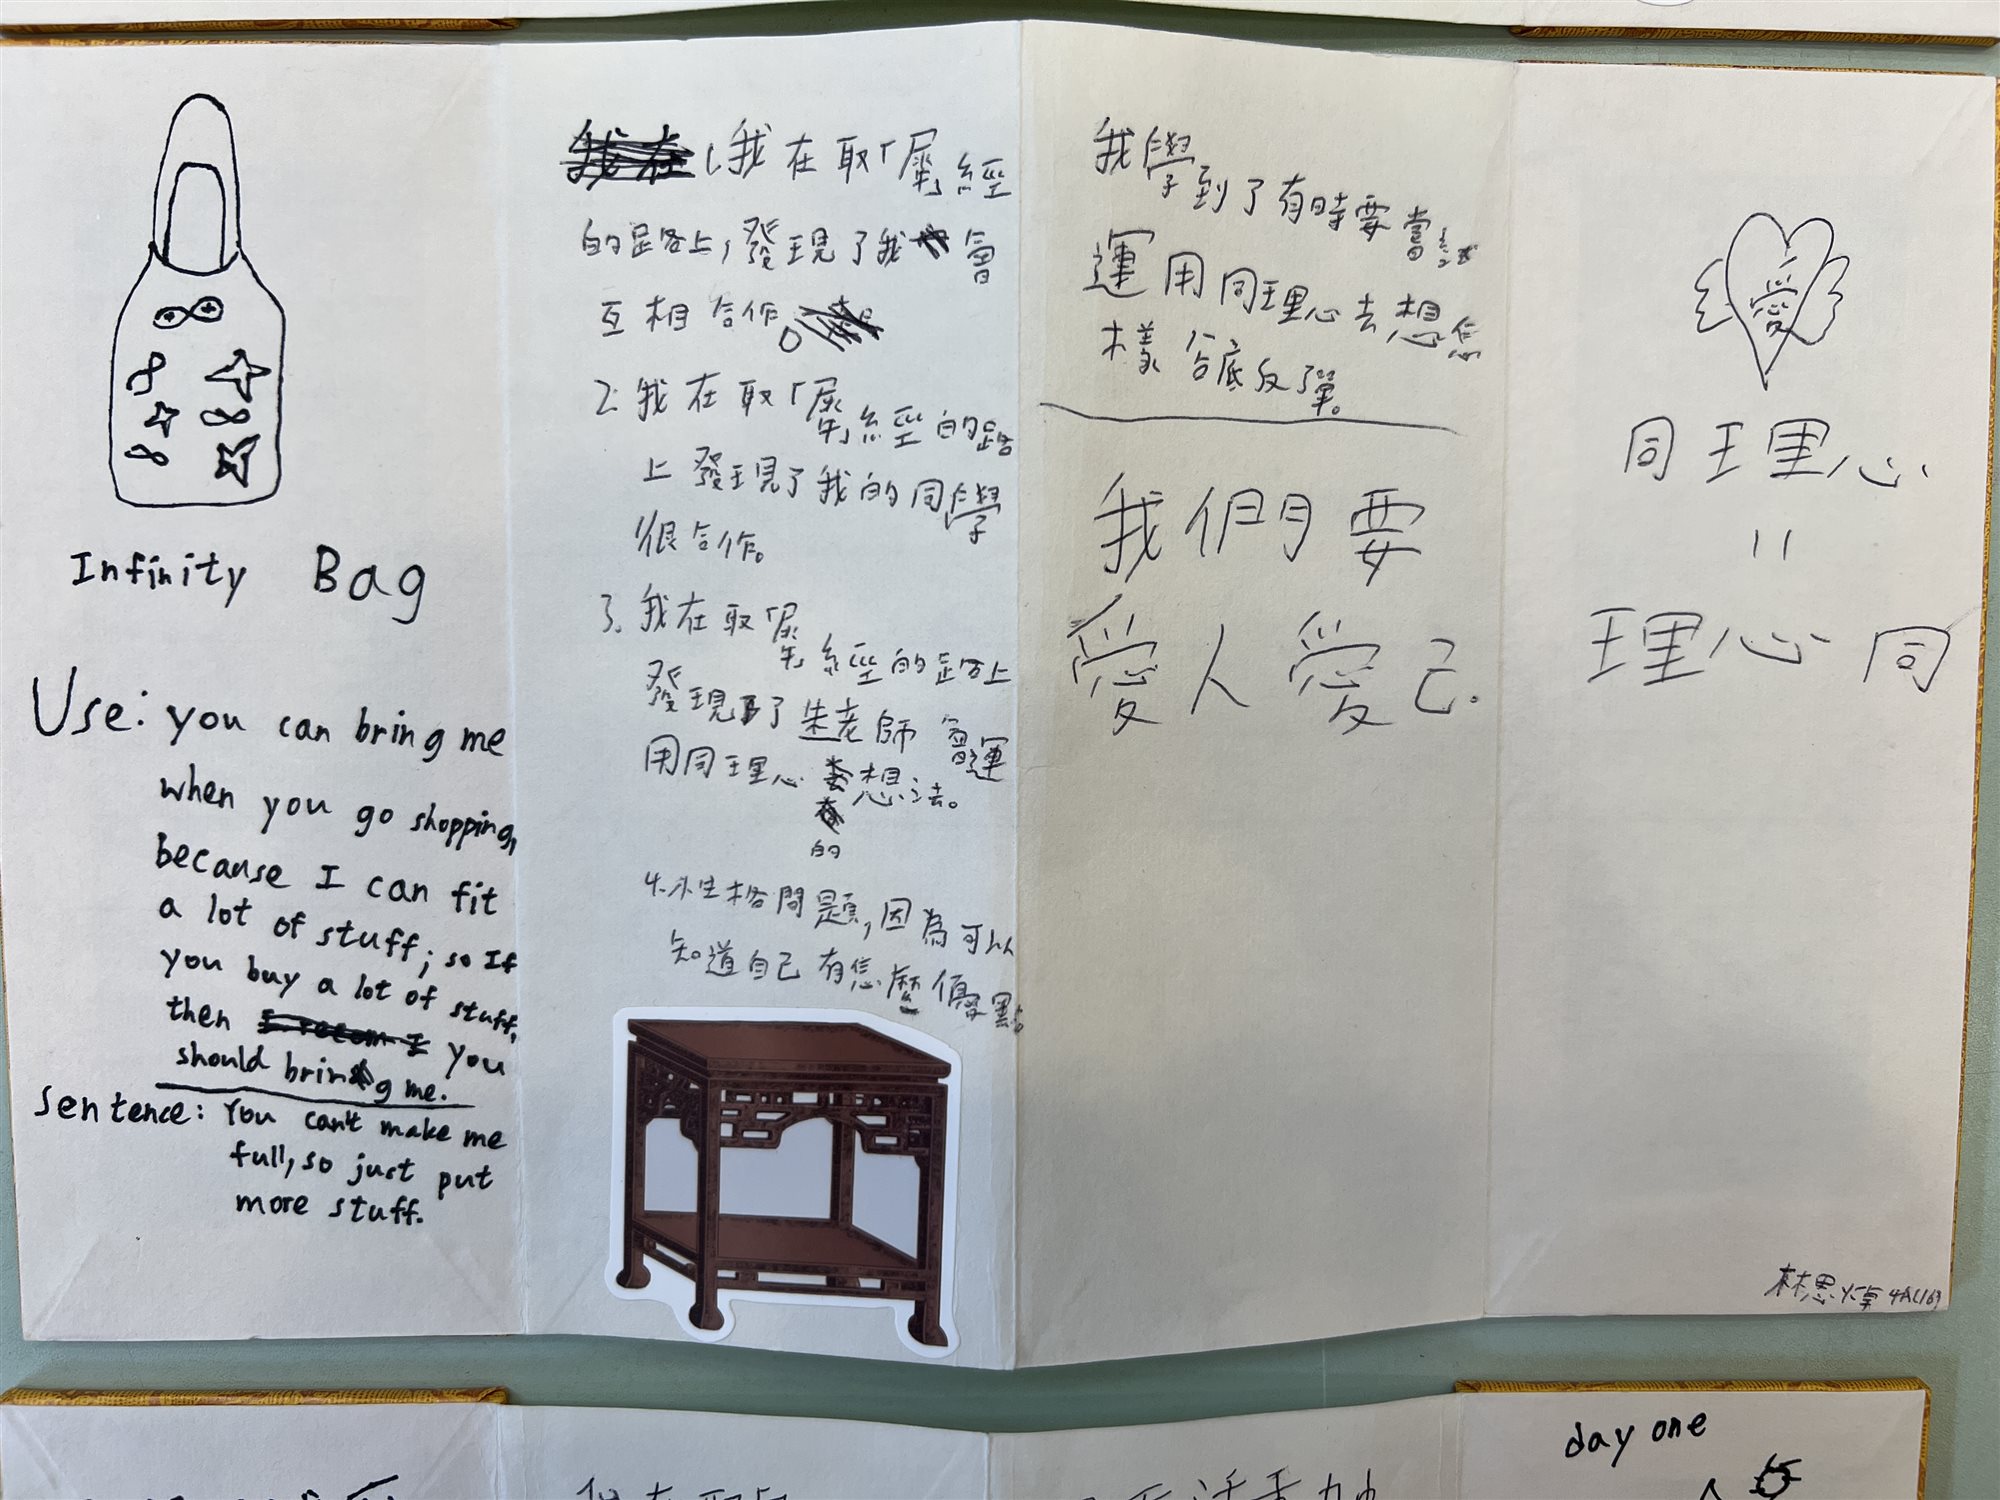 Infinity Bag
Use: you can bring me
when you go shopping,
because I can fit
a lot of stuff; so If
you buy a lot of stuff,
then you
should bring me.
sentence: You can't make me
full, so just put
more stuff.
1.我在取「犀」經
的路上,發現了我會
互相合作。
2.我在取「犀」經的路
上發現了我的同學
很合作。
3.我在取「犀」經的路上
發現了朱老師會運
用同理心的想法。
4.性格問題,因為可以
知道自己有怎麼優點。
我學到了有時要嘗試
運用同理心去想怎
樣谷底反彈。
我們要
愛人愛己.
愛
同理心
=
理心同
林思 4A(16)
day one